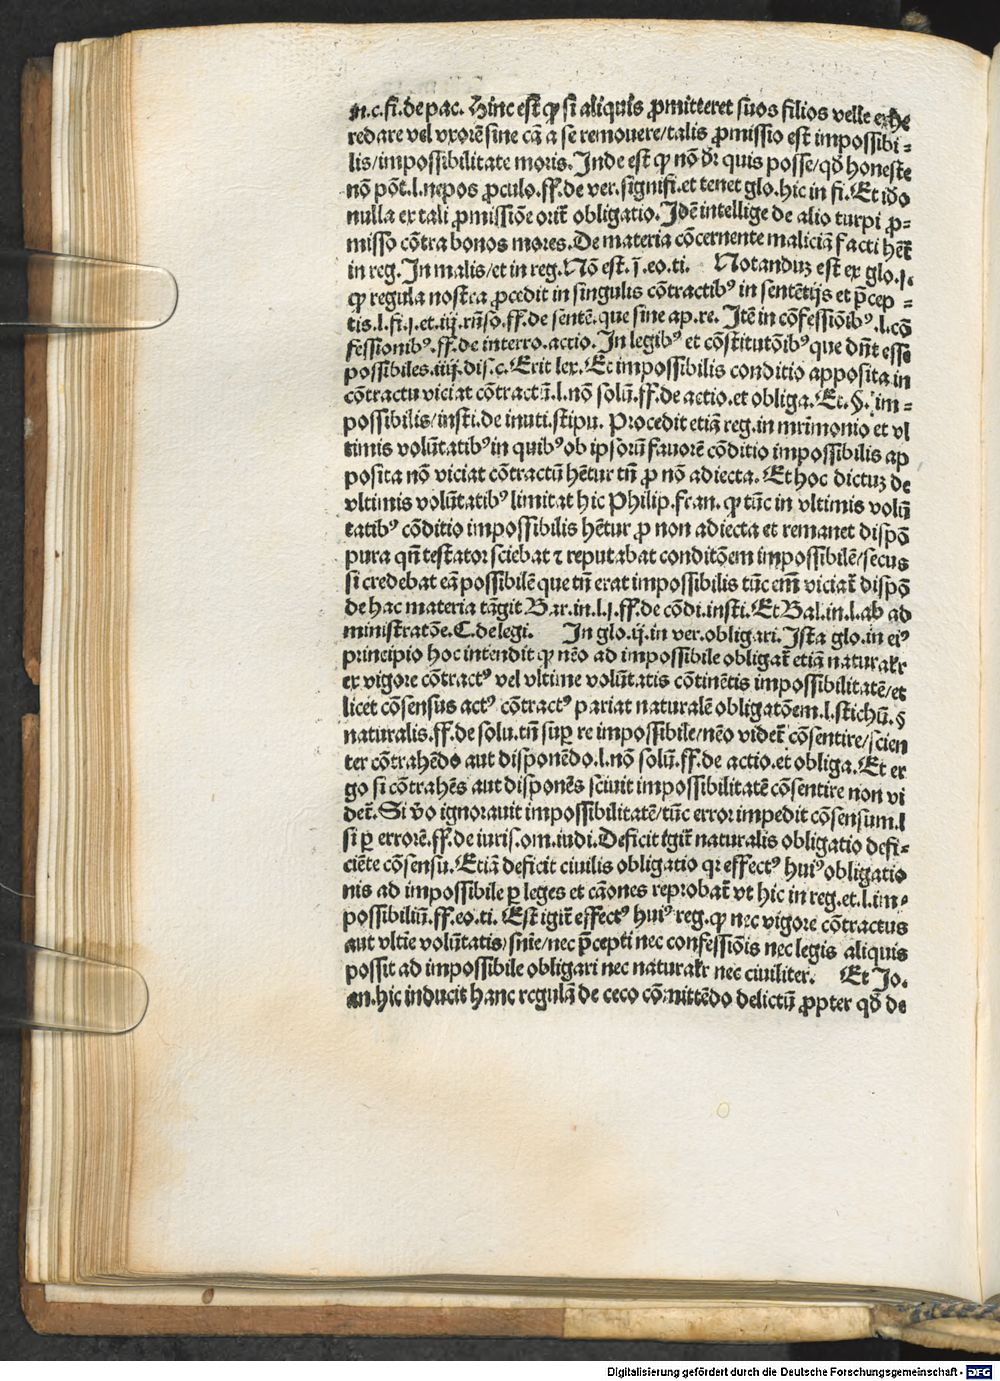 in.c.fi.de pac. Hinc est̄ ꝙ si aliquis ꝓmitteret suos filios velle exhe
redare vel vxorē sine cā a se remouere/talis ꝓmissio est impossibi-
lis/impossibilitate moris. Inde est ꝙ nō dr̄ quis posse/qđ honeste
nō pōt.l.nepos ꝓculo.ff.de ver.signifi.et tenet glo.hic in fi. Et iđo
nulla ex tali ꝓmissiōe orit̄ obligatio. Idē intellige de alio turpi ꝓ-
misso cōtra bonos mores. De materia cōcernente maliciā facti hēt̄
in reg. In malis/et in reg. Nō est. j̄.eo.ti. Notanduꝫ est ex glo.j.
ꝙ regula nostra ꝓcedit in singulis cōtractibꝰ in sentētijs et p̄cep-
tis.l.fi.j.et.iij.rn̄so.ff.de sentē.que sine ap.re. Itē in cōfessiōibꝰ.l.cō
fessionibꝰ.ff.de interro.actio. In legibꝰ et cōstitutōibꝰ que dn̄t esse
possibiles.iiij.dis.c. Erit lex. Et impossibilis conditio apposita in
cōtractu viciat cōtractū.l.nō solū.ff.de actio.et obliga. Et. §. im-
possibilis/insti.de inuti.stipu. Procedit etiā reg.in mr̄imonio et vl
timis volūtatibꝰ in quibꝰ ob ipsorū fauorē cōditio impossibilis ap
posita nō viciat cōtractū hētur tn̄ ꝓ nō adiecta. Et hoc dictuꝫ de
vltimis volūtatibꝰ limitat hic Philip.fran. ꝙ tūc in vltimis volū
tatibꝰ cōditio impossibilis hētur ꝓ non adiecta et remanet dispō
pura qn̄ testator sciebat ⁊ reputabat conditōem impossibilē/secus
si credebat eā possibilē que tn̄ erat impossibilis tūc em̄ viciat̄ dispō
de hac materia tāgit Bar.in.l.j.ff.de cōdi.insti. Et Bal.in.l.ab ad
ministratōe.C.de legi. In glo.ij.in ver.obligari. Ista glo.in eiꝰ
principio hoc intendit ꝙ nēo ad impossibile obligat̄ etiā naturalr̄
ex vigore cōtractꝰ vel vltime volūtatis cōtinētis impossibilitatē/et
licet cōsensus actꝰ cōtractꝰ pariat naturalē obligatōem.l.stichū.§
naturalis.ff.de solu.tn̄ suꝑ re impossibile/nēo videt̄ cōsentire/scien
ter cōtrahēdo aut disponēdo.l.nō solū.ff.de actio.et obliga. Et er
go si cōtrahēs aut disponēs sciuit impossibilitatē cōsentire non vi
det̄. Si v̄o ignorauit impossibilitatē/tūc error impedit cōsensum.l
si ꝑ errorē.ff.de iuris.om.iudi. Deficit igit̄ naturalis obligatio defi-
ciēte cōsensu. Etiā deficit ciuilis obligatio qꝛ effectꝰ huiꝰ obligatio
nis ad impossibile ꝑ leges et cāones reprobat̄ vt hic in reg.et.l.im-
possibiliū.ff.eo.ti. Est igit̄ effectꝰ huiꝰ reg. ꝙ nec vigore cōtractus
aut vltie volūtatis/snie/nec p̄cepti nec confessiōis nec legis aliquis
possit ad impossibile obligari nec naturalr̄ nec ciuiliter. Et Jo.
an.hic inducit hanc regulā de ceco cōmittēdo delictū ꝓpter qđ de
Digitalisierung gefördert durch die Deutsche Forschungsgemeinschaft - DFG